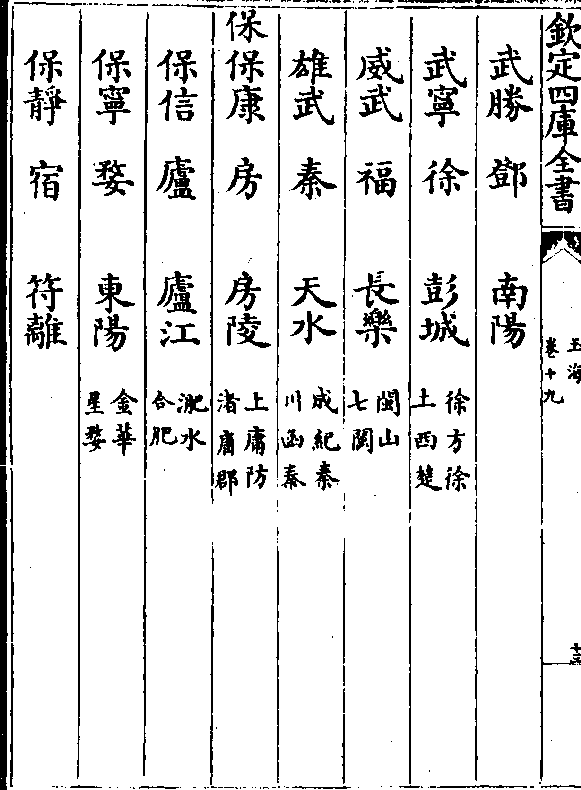 欽定四庫全書
玉海
卷十九
十三
武勝 鄧 南陽
武寧 徐 彭城 徐方徐土西楚
威武 福 長樂 閩山七閩
雄武 秦 天水 成紀秦川函秦
保保康 房 房陵 上庸防渚庸郡
保信 廬 廬江 淝水合肥
保寧 婺 東陽 金華星婺
保靜 宿 符離